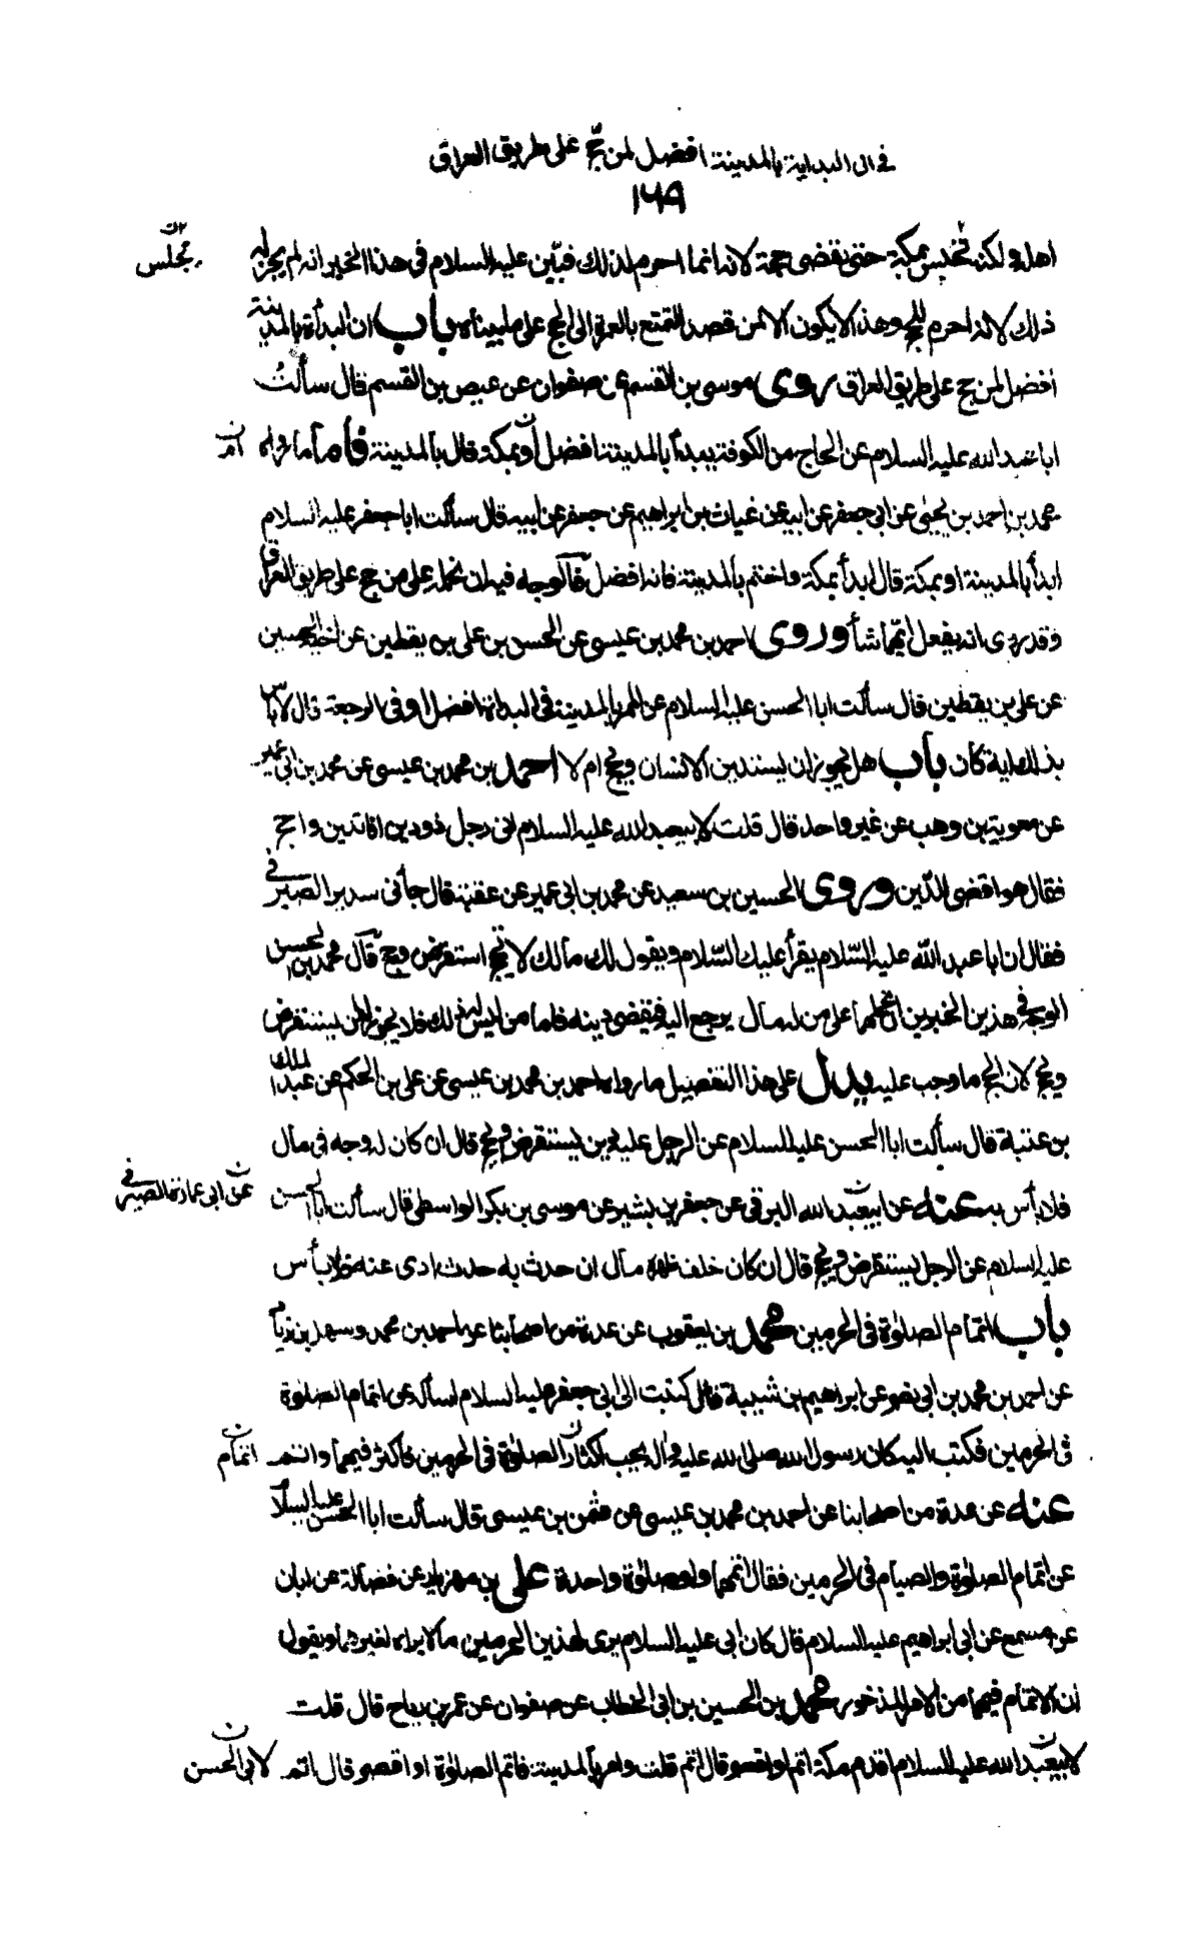 في ان البداية بالمدينة افضل لمن حج على طريق العراق
١٦٩
اهله ولكنه تحتبس بمكة حتى نقضى حجه لانه انما احرم لذلك فبين عليه السلام فى هذا الخبر انه لم يجز له
مجلس
ذلك لانه احرم للحج وهذا لا يكون الا لمن قصد التمتع بالعمرة الى الحج على ما بيناه باب ان البدأة بالمدينة
افضل لمن حج على طريق العراق روى موسى بن القسم عن صفوان عن عيص بن القسم قال سألت
ابا عبد الله عليه السلام عن الحاج من الكوفة يبدأ بالمدينة افضل او بمكة قال بالمدينة فأما ما رواه
محمد بن احمد بن يحيى عن ابى جعفر عن ابيه عن غياث بن ابراهيم عن جعفر عن ابيه قال سألت ابا جعفر عليه السلام
ابدأ بالمدينة او بمكة قال ابدأ بمكة واختم بالمدينة فانه افضل فالوجه فيه ان نحمله على من حج على طريق العراق
وقد روى انه يفعل ايهما شأ وروى احمد بن محمد بن عيسى عن الحسن بن على بن يقطين عن اخيه الحسين
عن على بن يقطين قال سألت ابا الحسن عليه السلام عن الممر بالمدينة فى البداة افضل او فى الرجعة قال لا بأس
بذلك اية كان باب هل يجوز ان يستدين الانسان ويحج ام لا احمد بن محمد بن عيسى عن محمد بن ابى عمير
عن معوية بن وهب عن غير واحد قال قلت لابيعبد الله عليه السلام انى رجل ذو دين افاتدين واحج
فقال هو اقضى للدّين وروى الحسين بن سعيد عن محمد بن ابى عمير عن عقبة قال جأنى سدير الصيرفى
فقال ان ابا عبد الله عليه السّلام يقرأ عليك السّلام ويقول لك مالك لا تحج استقرض وحج قال محمد بن الحسن
الوجه فى هذين الخبرين ان نحملهما على من له مال يرجع اليه فيقضى دينه فاما من ليس له ذلك فلا يجوز له ان يستقرض
ويحج لان الحج ما وجب عليه يدل على هذا التفصيل ما رواه احمد بن محمد بن عيسى عن على بن الحكم عن عبد الملك
بن عتبة قال سألت ابا الحسن عليه السلام عن الرجل عليه دين يستقرض ويحج قال ان كان له وجه فى مال
فلا بأس به عنه عن ابيعبد الله البرقى عن جعفر بن بشير عن موسى بن بكر الواسطى قال سألت ابا الحسن
عليه السلام عن الرجل يستقرض ويحج قال ان كان خلف ظهره مال ان حدث به حدث ادى عنه فلا بأس
باب اتمام الصلوة فى الحرمين محمد بن يعقوب عن عدة من اصحابنا عن احمد بن محمد وسهل بن زياد
عن احمد بن محمد بن ابى نصر عن ابراهيم بن شيبة قال كتبت الى ابى جعفر عليه السلام اسأله عن اتمام الصلوة
فى الحرمين فكتب اليه كان رسول الله صلى الله عليه وآله يحب اكثار الصلوة فى الحرمين فاكثر فيهما واتم
اتمام
عنه عن عدة من اصحابنا عن احمد بن محمد بن عيسى عن عثمن بن عيسى قال سألت ابا الحسن عليه السلام
عن اتمام الصلوة والصيام فى الحرمين فقال اتمها ولو صلوة واحدة على بن مهزيار عن فضالة عن ابان
عن مسمع عن ابى ابراهيم عليه السلام قال كان ابى عليه السلام يرى لهذين الحرمين ما لا يراه لغيرهما ويقول
ان الاتمام فيهما من الامر المذخور محمد بن الحسين بن ابى الخطاب عن صفوان عن عمر بن رباح قال قلت
لابيعبد الله عليه السلام اقدم مكة اتم او اقصر قال اتم قلت وامر بالمدينة فاتم الصلوة او اقصر قال اتم
لابى الحسن